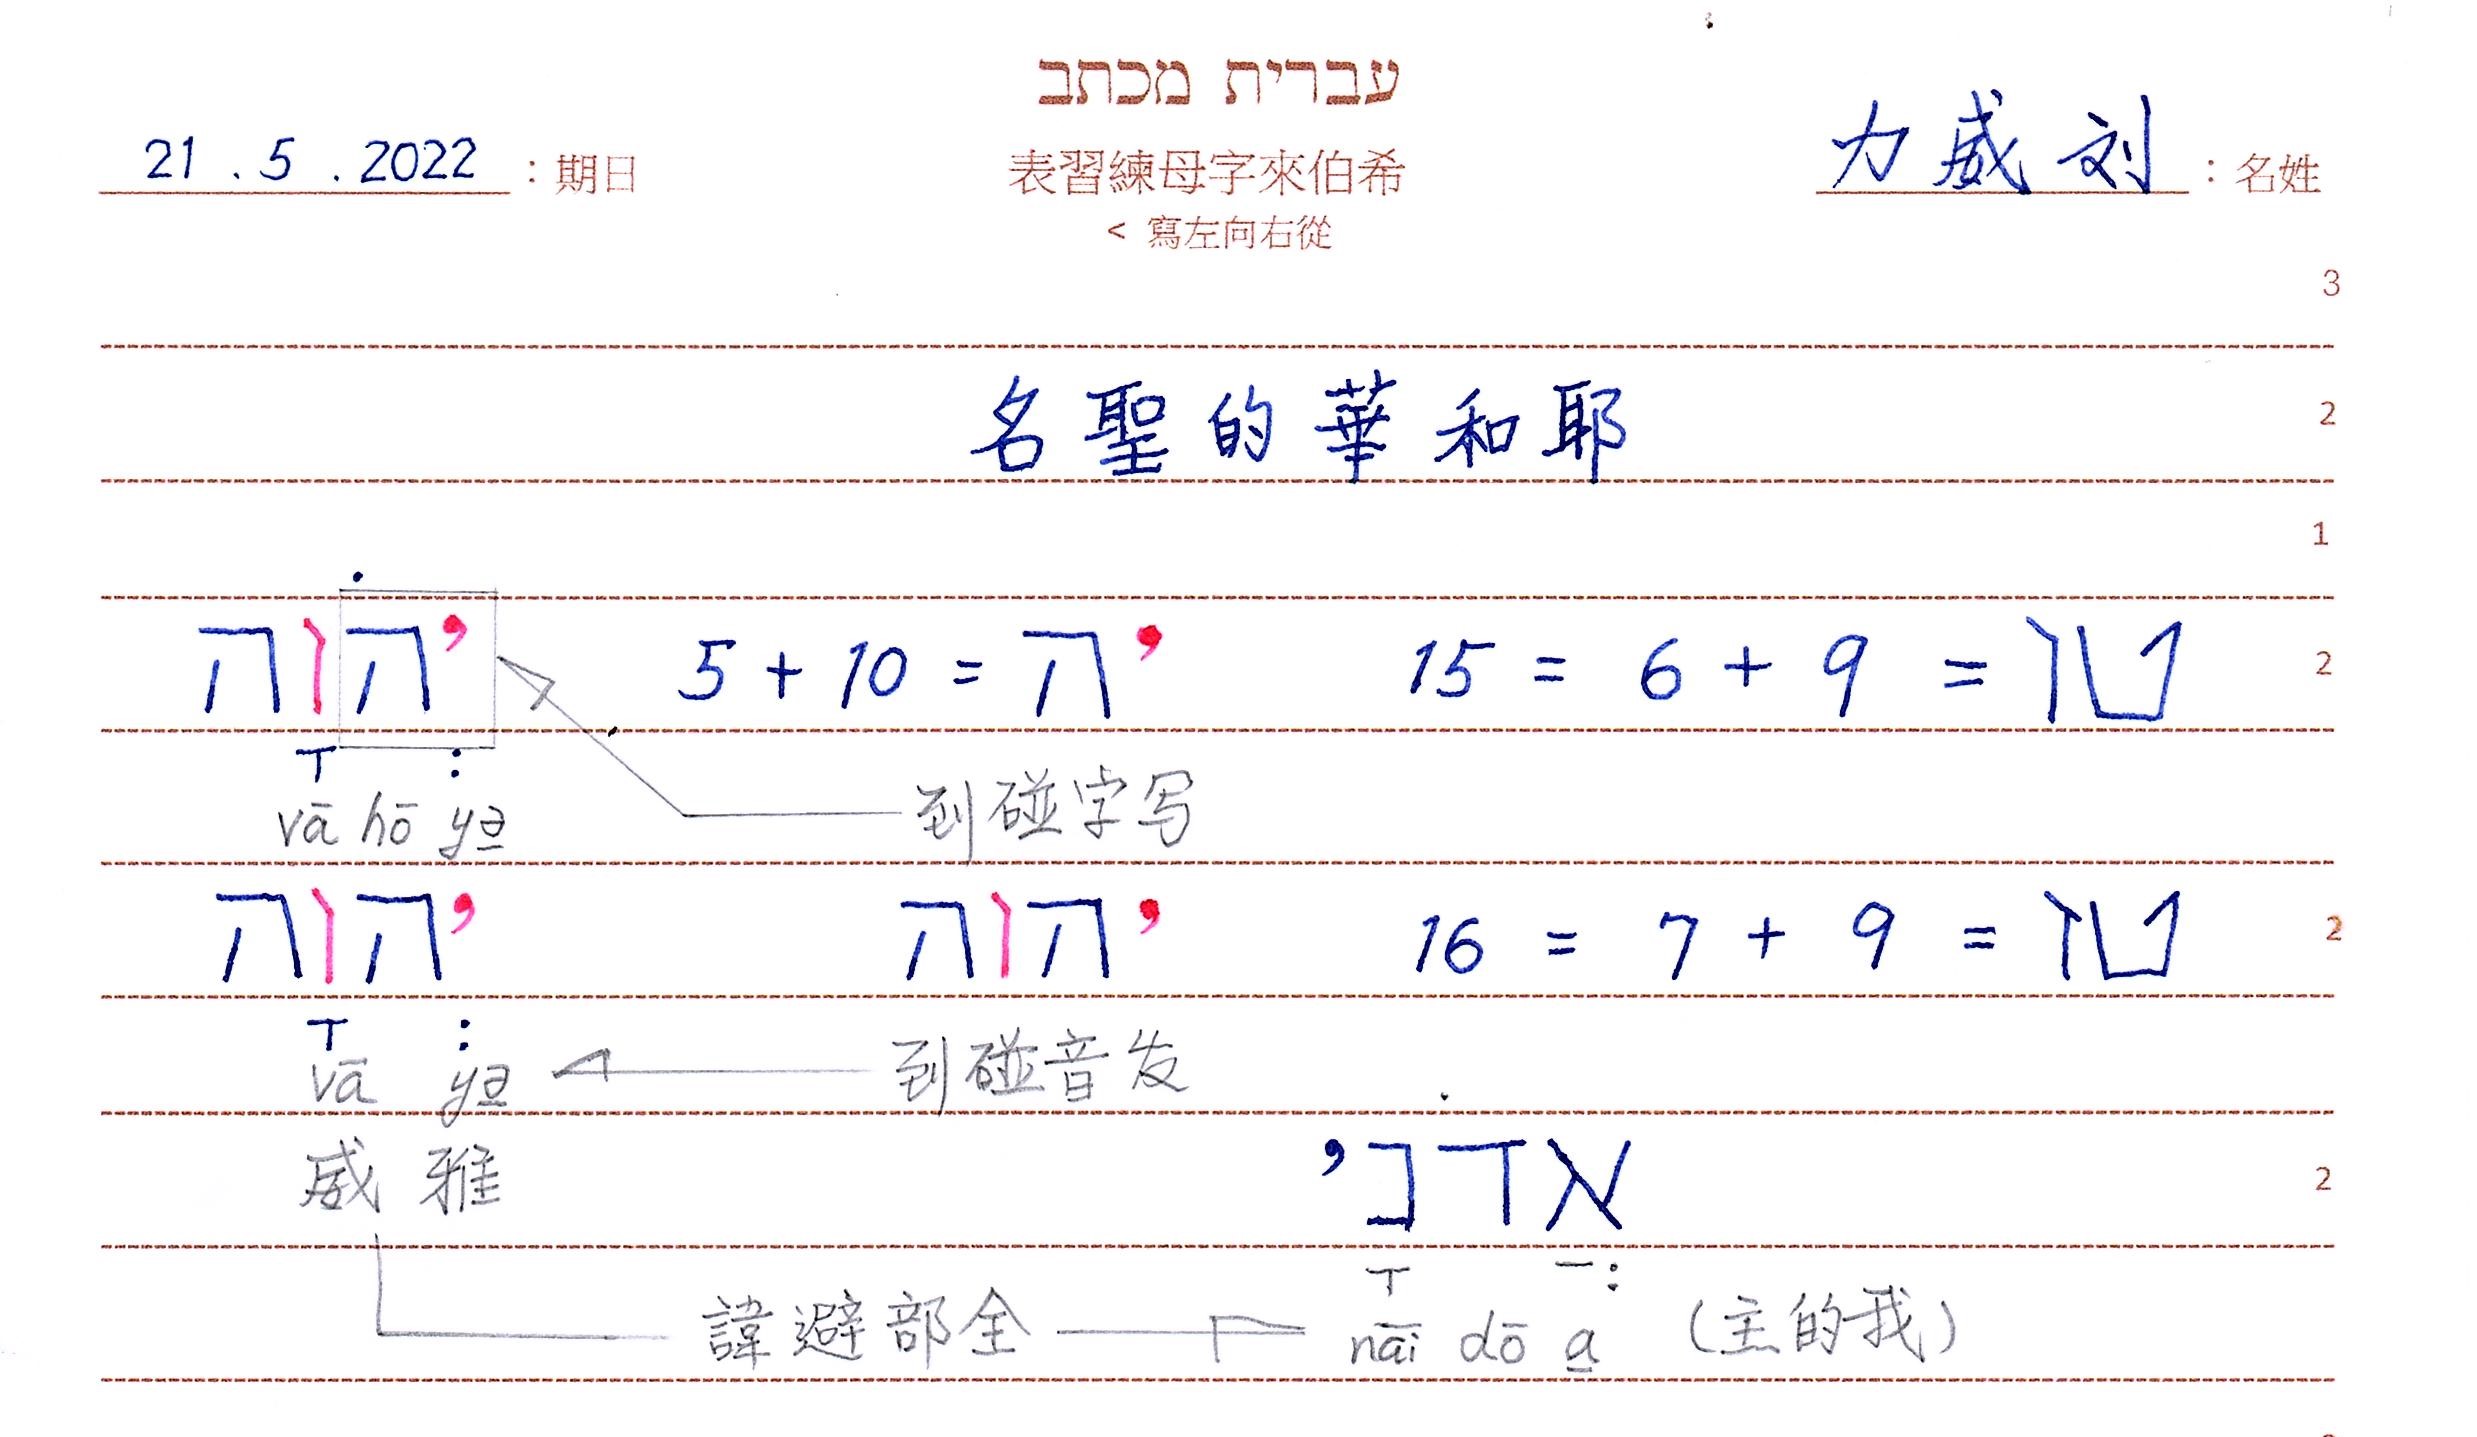 עברית מכתב
姓名：刘威力
希伯來字母練習表
日期：21 . 5 . 2022
從右向左寫 <
3
耶和華的聖名
2
1
2
טו = 9 + 6 = 15
יה = 10 + 5
יְהֹוָה
写字碰到
yə̱ hō vā
2
טז = 9 + 7 = 16
יהוה
יְהוָה
发音碰到
yə̱ vā
2
אֲדֹנָי
雅威
a̱ dō nāi
(我的主)
全部避諱